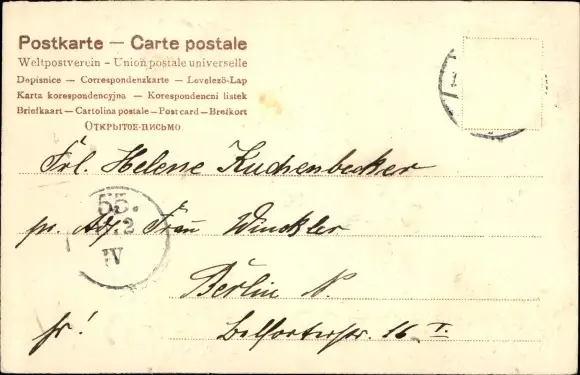 Postkarte — Carte postale
Weltpostverein - Union postale universelle
Dopisnice — Correspondenzkarte — Levelező-Lap
Karta korespondencyjna — Korespondencni listek
Briefkaart — Cartolina postale — Post card — Brefkort
Открытое-письмо
Frl. Helene Kuchenbecker
pr. Adr. Frau Winckler
55.
2
IV
Berlin N.
fr! Belforterstr. 16 I.